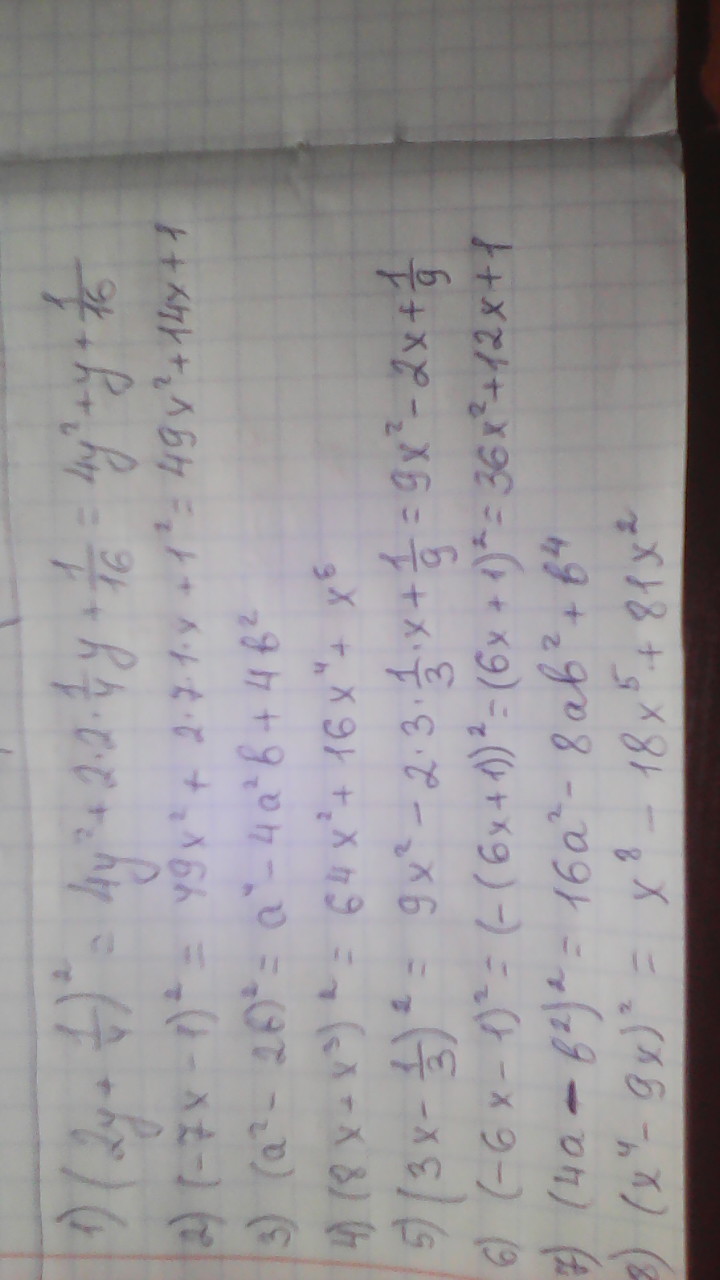 1) (2y + 1/4)² = 4y² + 2·2·1/4y + 1/16 = 4y² + y + 1/16
2) (-7x - 1)² = 49x² + 2·7·1·x + 1² = 49x² + 14x + 1
3) (a² - 2b)² = a⁴ - 4a²b + 4b²
4) (8x + x³)² = 64x² + 16x⁴ + x⁶
5) (3x - 1/3)² = 9x² - 2·3·1/3·x + 1/9 = 9x² - 2x + 1/9
6) (-6x - 1)² = (-(6x+1))² = (6x+1)² = 36x² + 12x + 1
7) (4a - b²)² = 16a² - 8ab² + b⁴
8) (x⁴ - 9x)² = x⁸ - 18x⁵ + 81x²